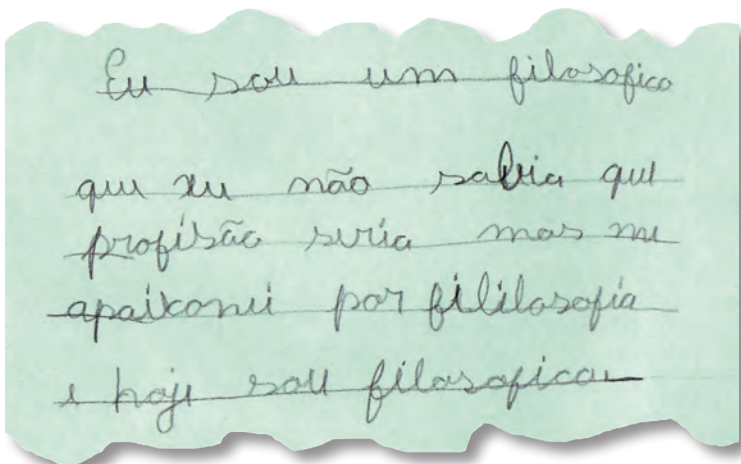 Eu sou um filosofico
que eu não sabia que
profisão seria mas me
apaixonei por fililosofia
e hoje sou filosofico